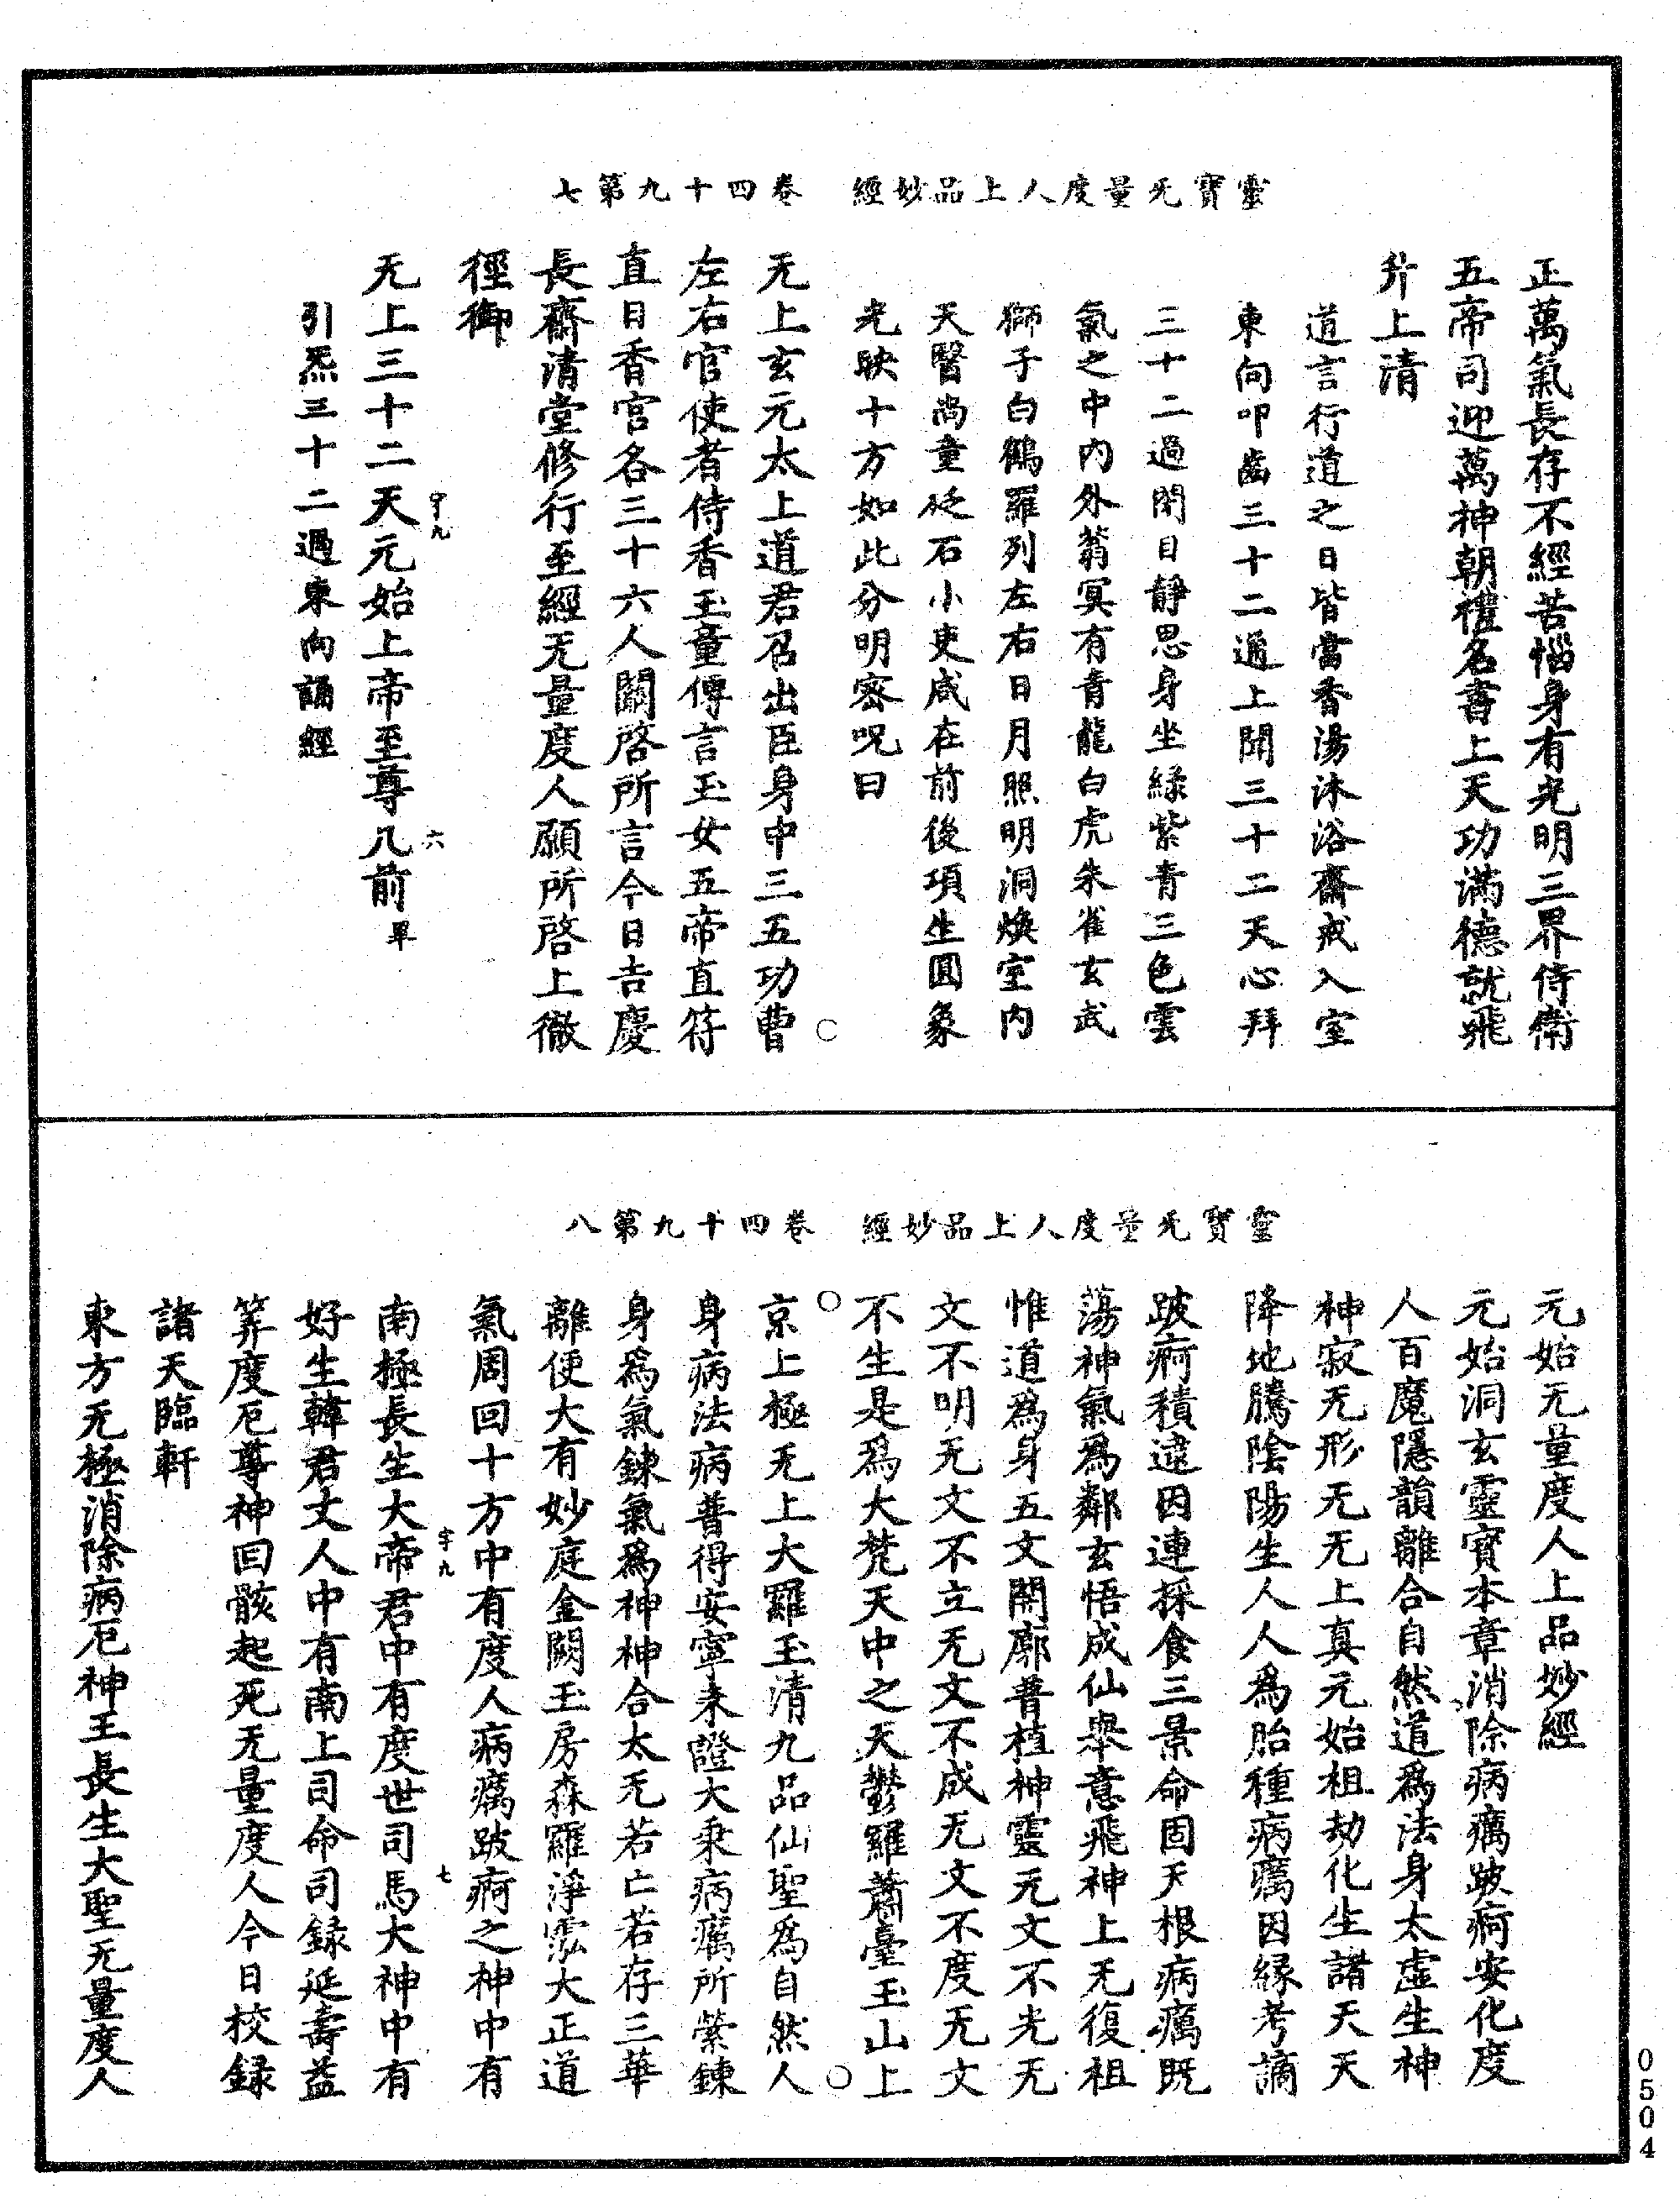 靈寶无量度人上品妙經　卷四十九第七
正萬氣長存不經苦惱身有光明三界侍衛
五帝司迎萬神朝禮名書上天功滿德就飛
升上清
道言行道之日皆當香湯沐浴齋戒入室
東向叩齒三十二通上聞三十二天心拜
三十二過閉目靜思身坐綠紫青三色雲
氣之中內外蓊冥有青龍白虎朱雀玄武
獅子白鶴羅列左右日月照明洞煥室內
天醫尚童砭石小吏咸在前後項生圓象
光映十方如此分明密呪曰
无上玄元太上道君召出臣身中三五功曹
左右官使者侍香玉童傳言玉女五帝直符
直日香官各三十六人關啓所言今日吉慶
長齋清堂修行至經无量度人願所啓上徹
徑御
无上三十二天元始上帝至尊几前畢
宇九
六
引炁三十二過東向誦經
靈寶无量度人上品妙經　卷四十九第八
元始无量度人上品妙經
元始洞玄靈寶本章消除病癘跛痾安化度
人百魔隱韻離合自然道為法身太虛生神
神寂无形无无上真元始祖劫化生諸天天
降地騰陰陽生人人人為胎種病癘因緣考謫
跛痾積逮因連採食三景命固天根病癘既
蕩神氣為鄰玄悟成仙舉意飛神上无復祖
惟道為身五文開廓普植神靈元文不光无
文不明无文不立无文不成无文不度无文
不生是為大梵天中之天鬱羅蕭臺玉山上
京上極无上大羅玉清九品仙聖為自然人
身病法病普得安寧未證大乘病癘所縈鍊
身為氣鍊氣為神神合太无若亡若存三華
離便大有妙庭金闕玉房森羅淨泓大正道
氣周回十方中有度人病癘跛痾之神中有
南極長生大帝君中有度世司馬大神中有
宇九
七
好生韓君丈人中有南上司命司錄延壽益
筭度厄尊神回骸起死无量度人今日校錄
諸天臨軒
東方无極消除病厄神王長生大聖无量度人
0504